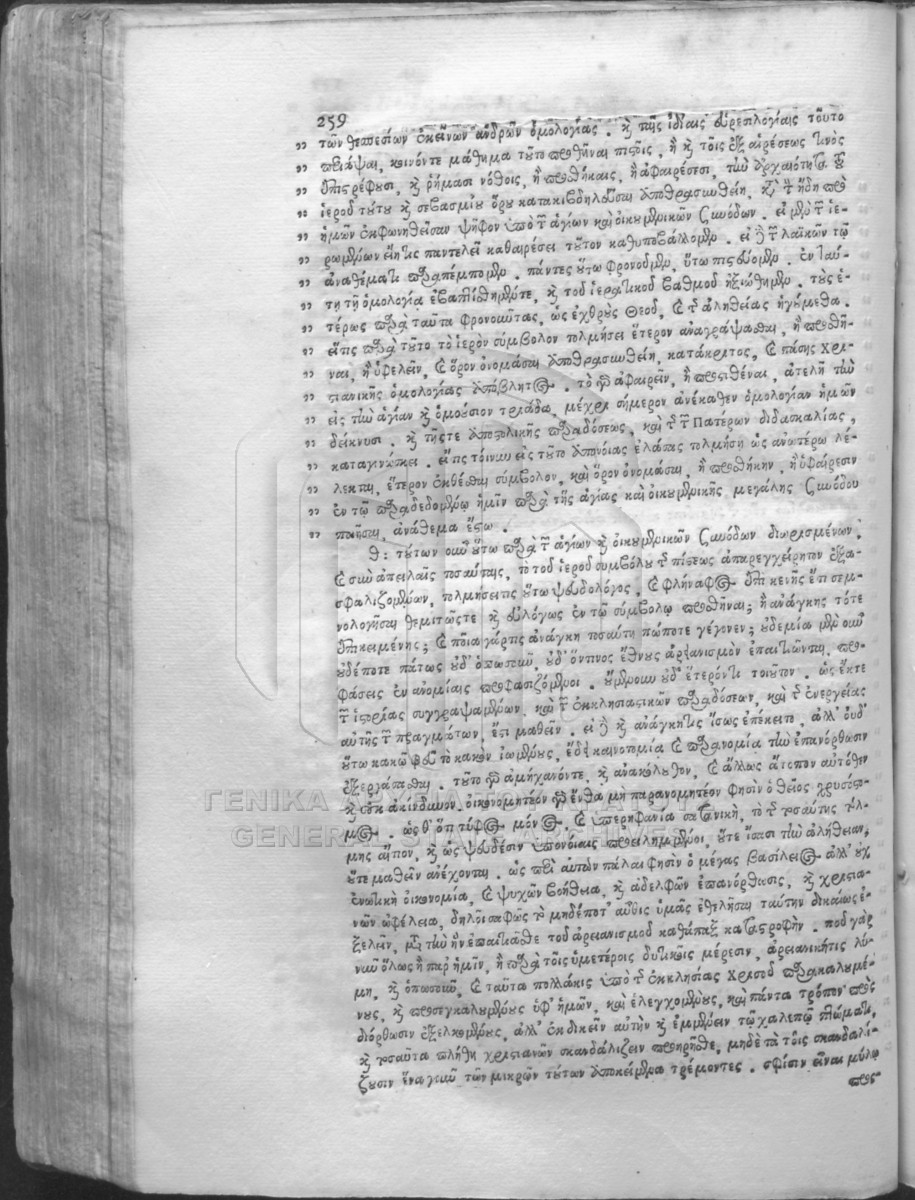 259
„ τῶν θεσπεσίων ἐκείνων ἀνδρῶν ὁμολογίας. καὶ ταῖς ἰδίαις εὑρεσιλογίαις τοῦτο
„ περιάψαι, κοινόντε μάθημα τοῦτο προθεῖναι πιστοῖς, ἢ καὶ τοῖς ἐξ αἱρέσεως τινὸς
„ ἐπιστρέφουσι, καὶ ῥήμασι νόθοις, ἢ προσθήκαις, ἢ ἀφαιρέσεσι, τὴν ἀρχαιότητα τοῦ
„ ἱεροῦ τούτου καὶ σεβασμίου ὅρου κατακιβδηλεῦσαι ἀποθρασυνθείη, κατὰ τὴν ἤδη πρὸ
„ ἡμῶν ἐκφωνηθεῖσαν ψῆφον ὑπὸ τῶν ἁγίων καὶ οἰκουμενικῶν Συνόδων. εἰ μὲν τῶν ἱε-
„ ρωμένων εἴη τις παντελεῖ καθαιρέσει τοῦτον καθυποβάλλομεν. εἰ δὲ τῶν λαϊκῶν τῷ
„ ἀναθέματι παραπέμπομεν. πάντες οὕτω φρονοῦμεν, οὕτω πιστεύομεν. ἐν ταύ-
„ τῃ τῇ ὁμολογίᾳ ἐβαπτίσθημέντε, καὶ τοῦ ἱερατικοῦ βαθμοῦ ἠξιώθημεν. τοὺς ἑ-
„ τέρως παρὰ ταῦτα φρονοῦντας, ὡς ἐχθροὺς Θεοῦ, καὶ τῆς ἀληθείας ἡγούμεθα.
„ εἴτις παρὰ τοῦτο τὸ ἱερὸν σύμβολον τολμήσει ἕτερον ἀναγράψασθαι, ἢ προσθεῖ-
„ ναι, ἢ ὑφελεῖν, καὶ ὅρον ὀνομάσαι ἀποθρασυνθείη, κατάκριτος, καὶ πάσης χρι-
„ στιανικῆς ὁμολογίας ἀπόβλητος. τὸ γὰρ ἀφαιρεῖν, ἢ προστιθέναι, ἀτελῆ τὴν
„ εἰς τὴν ἁγίαν καὶ ὁμούσιον τριάδα, μέχρι σήμερον ἀνέκαθεν ὁμολογίαν ἡμῶν
„ δείκνυσι. καὶ τῆστε ἀποστολικῆς παραδόσεως, καὶ τῆς τῶν Πατέρων διδασκαλίας,
„ καταγινώσκει. εἴτις τοίνυν εἰς τοῦτο ἀπονοίας ἐλάσας τολμήσῃ ὡς ἀνωτέρω λέ-
„ λεκται, ἕτερον ἐκθέσθαι σύμβολον, καὶ ὅρον ὀνομάσαι, ἢ προσθήκην, ἢ ὑφαίρεσιν
„ ἐν τῷ παραδεδομένῳ ἡμῖν παρὰ τῆς ἁγίας καὶ οἰκουμενικῆς μεγάλης Συνόδου
„ ποιῆσαι, ἀνάθεμα ἔστω.
θ: τούτων οὖν οὕτω παρὰ τῶν ἁγίων καὶ οἰκουμενικῶν Συνόδων διωρισμένων,
καὶ σὺν ἀπειλαῖς τοσαύταις, τὸ τοῦ ἱεροῦ συμβόλου τῆς πίστεως ἀπαρεγχείρητον ἐξα-
σφαλιζομένων, τολμήσειτις οὕτω ψευδολόγος, καὶ φλήναφος ἐπὶ κενῆς ἔτι σεμ-
νολογῆσαι θεμιτῶςτε καὶ εὐλόγως ἐν τῷ συμβόλῳ προσθεῖναι; ἢ ἀνάγκης τότε
ἐπικειμένης; καὶ ποία γάρτις ἀνάγκη τοσαύτη πώποτε γέγονεν; οὐδεμία μὲν οὖν
οὐδέποτε πάτως οὐδ' ὁπωστιοῦν, οὐδ' ὅντινος ἔθνους ἀρειανισμὸν ἐπαιτιῶνται, προ-
φάσεις ἐν ἀνομίαις προφασιζόμενοι. ὔμενουν οὐδ' ἑτερόντι τοιοῦτον. ὡς ἔκτε
τῶν ἱστορίας συγγραψαμένων καὶ τῶν ἐκκλησιαστικῶν παραδόσεων, καὶ τῆς ἐνεργείας
αὐτῆς τῶν πραγμάτων, ἔστι μαθεῖν. εἰ δὲ καὶ ἀνάγκητις ἴσως ἐπέκειτο, ἀλλ' οὐδ'
οὕτω κακῷ τὸ κακὸν ἰωμένους, ἔδει καινοτομίᾳ καὶ παρανομίᾳ τὴν ἐπανόρθωσιν
ἐξεργάσασθαι. τοῦτο γὰρ ἀμήχανόντε, καὶ ἀνακόλουθον, καὶ ἄλλως ἄτοπον αὐτόθεν
καὶ οὐκ ἀκίνδυνον. οἰκονομητέον γὰρ ἔνθα μὴ παρανομητέον φησὶν ὁ θεῖος χρυσόστο-
μος. ὥσθ' ὅτι τύφος μόνος, καὶ ὑπερηφανία σατανικὴ, τὸ τῆς τοσαύτης τολ-
μης αἴτιον, καὶ ὡς ψευδέσιν ὑπονοίαις προειλημμένοι, οὔτε ἴσασι τὴν ἀλήθειαν,
οὔτε μαθεῖν ἀνέχονται. ὡς περὶ αὐτῶν πάλαι φησὶν ὁ μέγας βασίλειος ἀλλ' οὐχ
ἑνωτικὴ οἰκονομία, καὶ ψυχῶν βοήθεια, καὶ ἀδελφῶν ἐπανόρθωσις, καὶ χριστια-
νῶν ὠφέλεια, δηλοῖ σαφῶς τὸ μηδέποτ' αὖθις ὑμᾶς ἐθελῆσαι ταύτην δικαίως ἐ-
ξελεῖν, μετὰ τὴν ἣν ἐπαιτιᾶσθε τοῦ ἀρειανισμοῦ καθάπαξ καταστροφήν. ποῦ γὰρ
νῦν ὅλως ἢ παρ' ἡμῖν, ἢ παρὰ τοῖς ὑμετέροις δυτικοῖς μέρεσιν, ἀρειανικήτις λύ-
μη, καὶ ὁπωστιοῦν, καὶ ταῦτα πολλάκις ὑπὸ τῆς ἐκκλησίας Χριστοῦ παρακαλουμέ-
νους, καὶ προσεγκαλουμένους ὑφ' ἡμῶν, καὶ ἐλεγχομένους, καὶ πάντα τρόπον πρὸς
διόρθωσιν ἐξελκομένους, ἀλλ' ἐκδικεῖν αὐτὴν καὶ ἐμμένειν τῷ χαλεπῷ πτώματι,
καὶ τοσαῦτα πλήθη χριστιανῶν σκανδάλιζειν προῃρῆσθε, μηδὲ τὰ τοῖς σκανδαλί-
ζουσιν ἕνα γοῦν τῶν μικρῶν τούτων ἀποκείμενα τρέμοντες. σφίσιν εἶναι μύλῳ
προς
ΓΕΝΙΚΑ ΑΡΧΕΙΑ ΤΟΥ ΚΡΑΤΟΥΣ
GENERAL STATE ARCHIVES